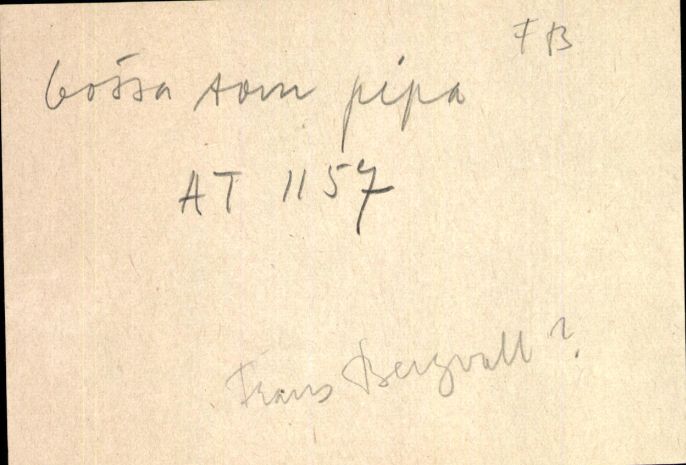 FB
bössa som pipa
AT 1157
Frans Bergvall?